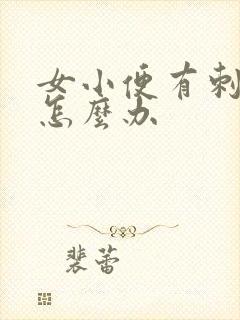 女小便有刺
怎麼办
裴蕾